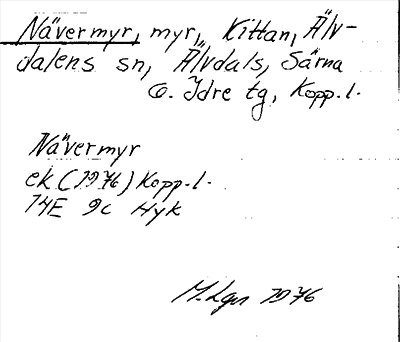 Nävermyr, myr, Kittan, Älv-
dalens sn, Älvdals, Särna
o. Idre tg, Kopp.l.
Nävermyr
ek (1976) Kopp.l.
14E 9c Hyk
M. Lgn 1976